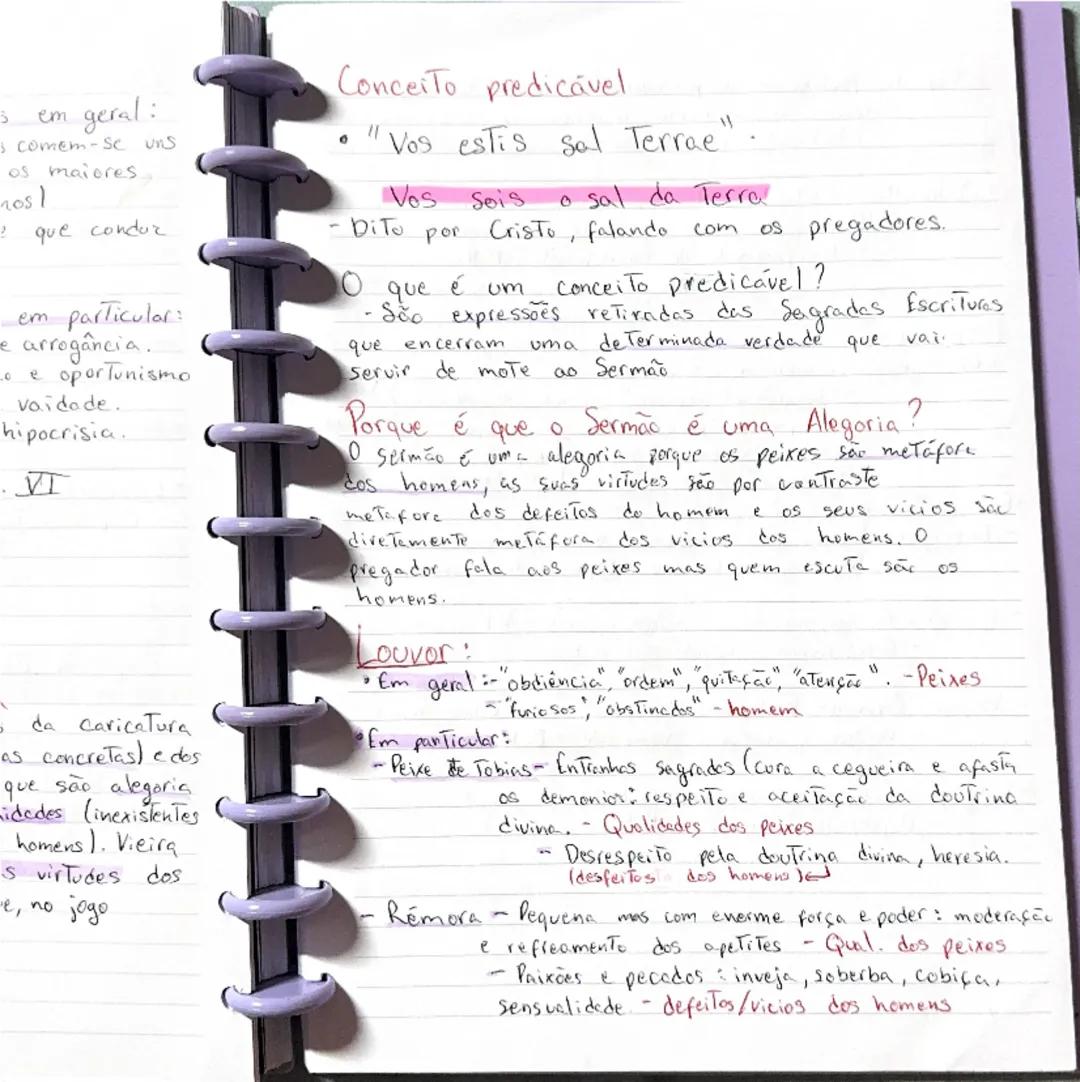 em geral:
comem-se uns
os maiores
que conduz
em particular:
e arrogância.
e oportunismo
vaidade.
hipocrisia.
VI
da caricatura
as concretas) e dos
que são alegoria
(inexistentes
homens). Vieira
s virtudes dos
e, no jogo
Conceito predicável
• "Vos estis sal Terrae".
Vos sois o sal da Terra
- Dito por Cristo, falando com os pregadores.
O que é um conceito predicável?
- São expressões retiradas das Sagradas Escrituras
que encerram uma determinada verdade que vai
servir de mote ao Sermão
Porque é que o Sermão é uma Alegoria?
O sermão é uma alegoria porque os peixes são metáfora
dos homens, as suas virtudes são por contraste
metafora dos defeitos do homem e os seus vicios são
diretamente metáfora dos vicios dos homens. O
pregador fala aos peixes mas quem escuta são os
homens.
Louvor:
• Em geral :-"obdiência", "ordem", "quitação", "atenção". - Peixes
- "furiosos", "obstinados" - homem
• Em particular:
- Peixe de Tobias - Entranhas sagradas (cura a cegueira e afasta
os demonios: respeito e aceitação da doutrina
divina. - Qualidades dos peixes
- Desrespeito pela doutrina divina, heresia.
(desfeitos dos homens)↵
- Rémora - Pequena mas com enorme força e poder: moderação
e refreamento dos apetites - Qual. dos peixes
- Paixões e pecados: inveja, soberba, cobiça,
sensualidade - defeitos/vicios dos homens